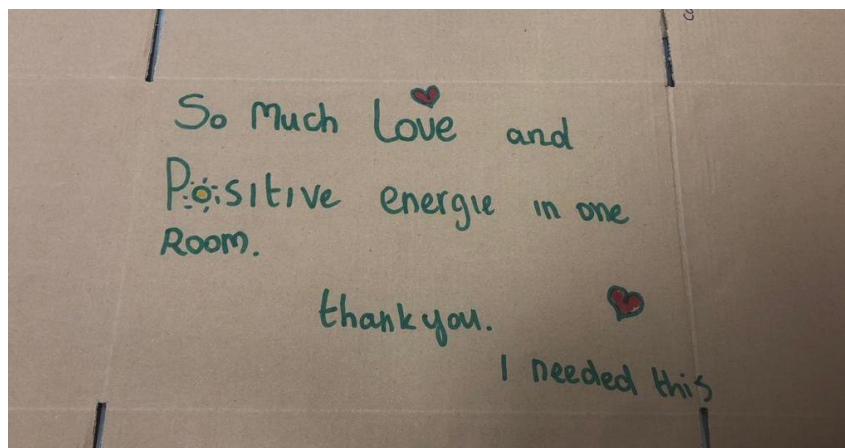 So Much Love and
Positive energie in one
Room.
thank you.
I needed this